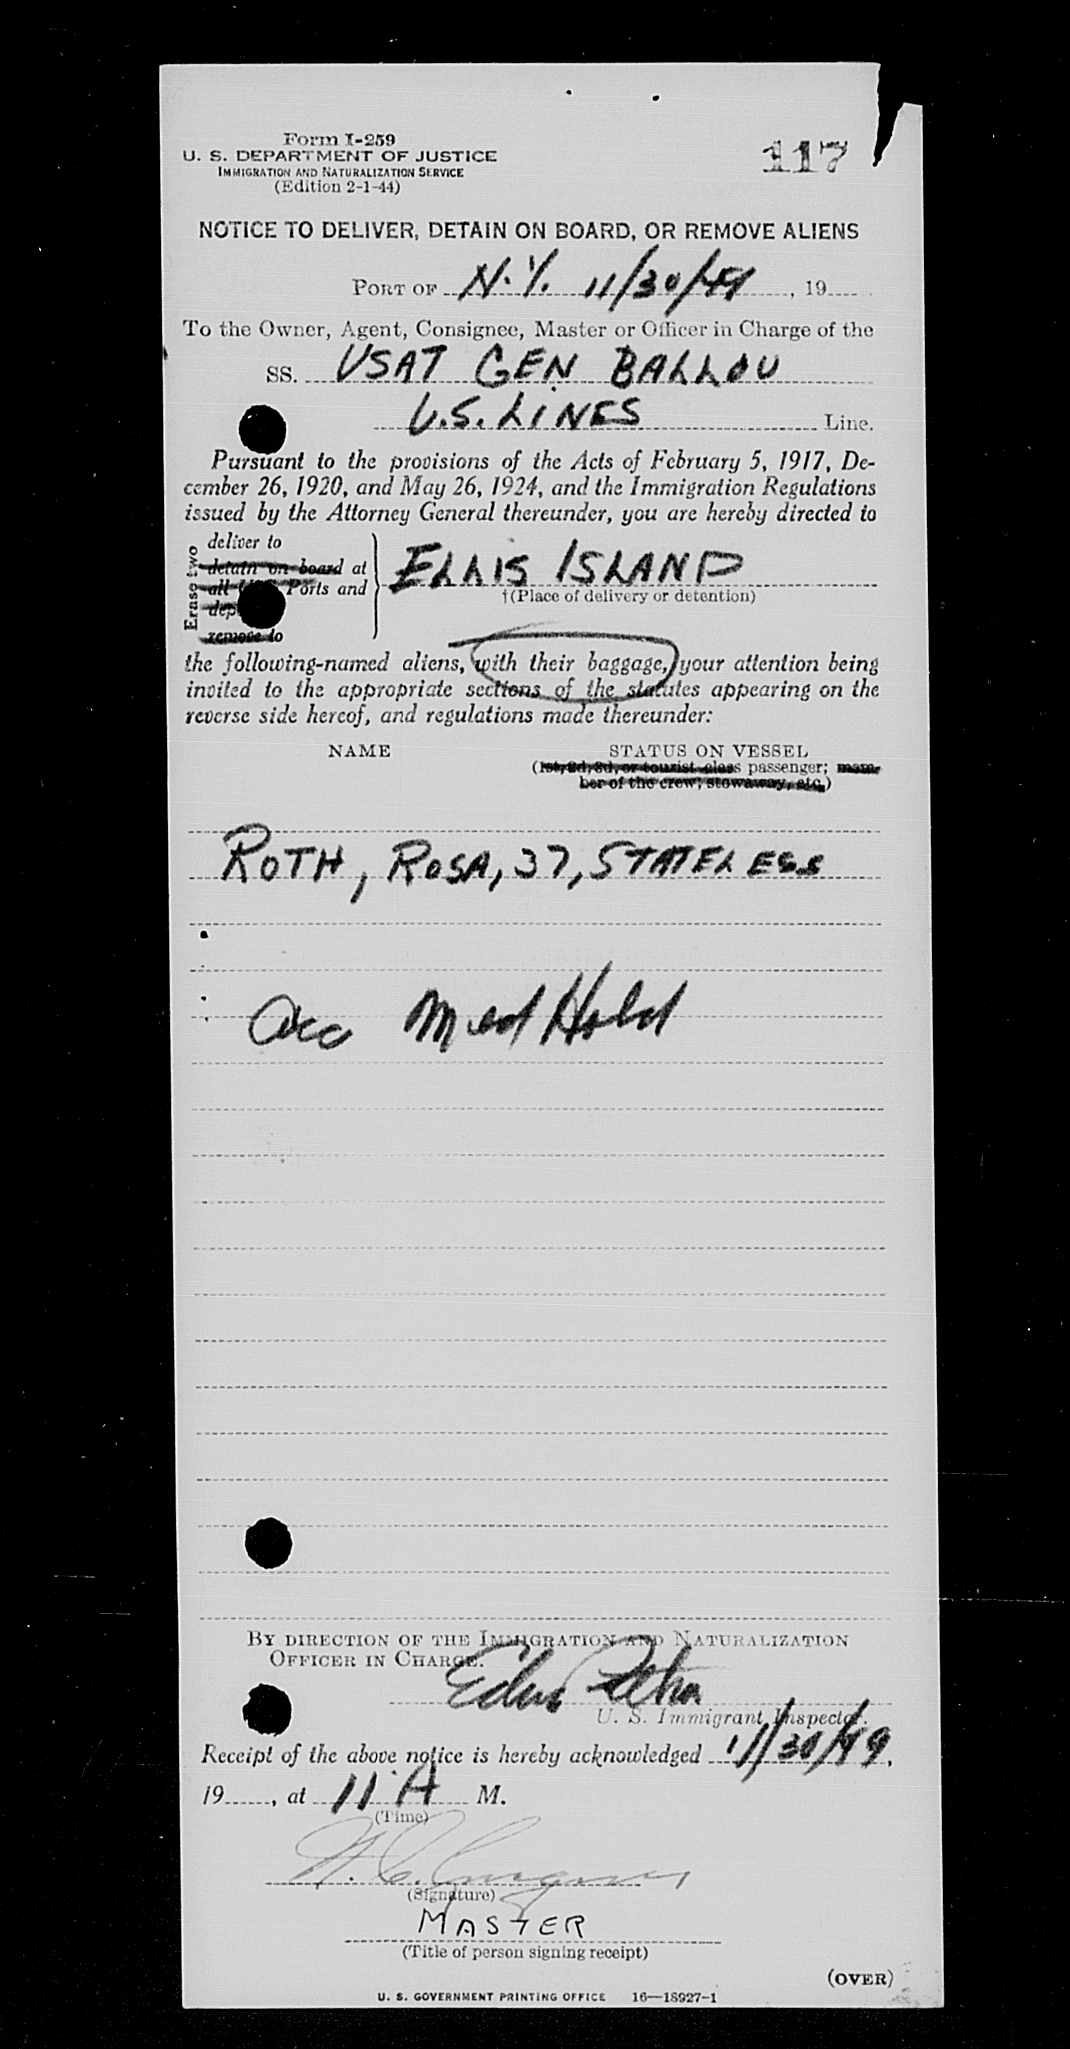 Form I-259
117
U. S. DEPARTMENT OF JUSTICE
IMMIGRATION AND NATURALIZATION SERVICE
(Edition 2-1-44)
NOTICE TO DELIVER, DETAIN ON BOARD, OR REMOVE ALIENS
PORT OF N.Y. 11/30/49, 19
To the Owner, Agent, Consignee, Master or Officer in Charge of the
SS. USAT GEN BALLOU
U.S. LINES Line.
Pursuant to the provisions of the Acts of February 5, 1917, De-
cember 26, 1920, and May 26, 1924, and the Immigration Regulations
issued by the Attorney General thereunder, you are hereby directed to
Erase two
deliver to
detain on board at
all Ports and
remove to
ELLIS ISLAND
†(Place of delivery or detention)
the following-named aliens, with their baggage, your attention being
invited to the appropriate sections of the statutes appearing on the
reverse side hereof, and regulations made thereunder:
NAME STATUS ON VESSEL
(1st, 2d, 3d, or tourist class passenger; mem-
ber of the crew; stowaway, etc.)
ROTH, ROSA, 37, STATELESS
acc Med Hold
BY DIRECTION OF THE IMMIGRATION AND NATURALIZATION
OFFICER IN CHARGE.
U. S. Immigrant Inspector.
Receipt of the above notice is hereby acknowledged 11/30/49,
19, at 11 A M.
(Time)
(Signature)
MASTER
(Title of person signing receipt)
(OVER)
U. S. GOVERNMENT PRINTING OFFICE 16—18927-1